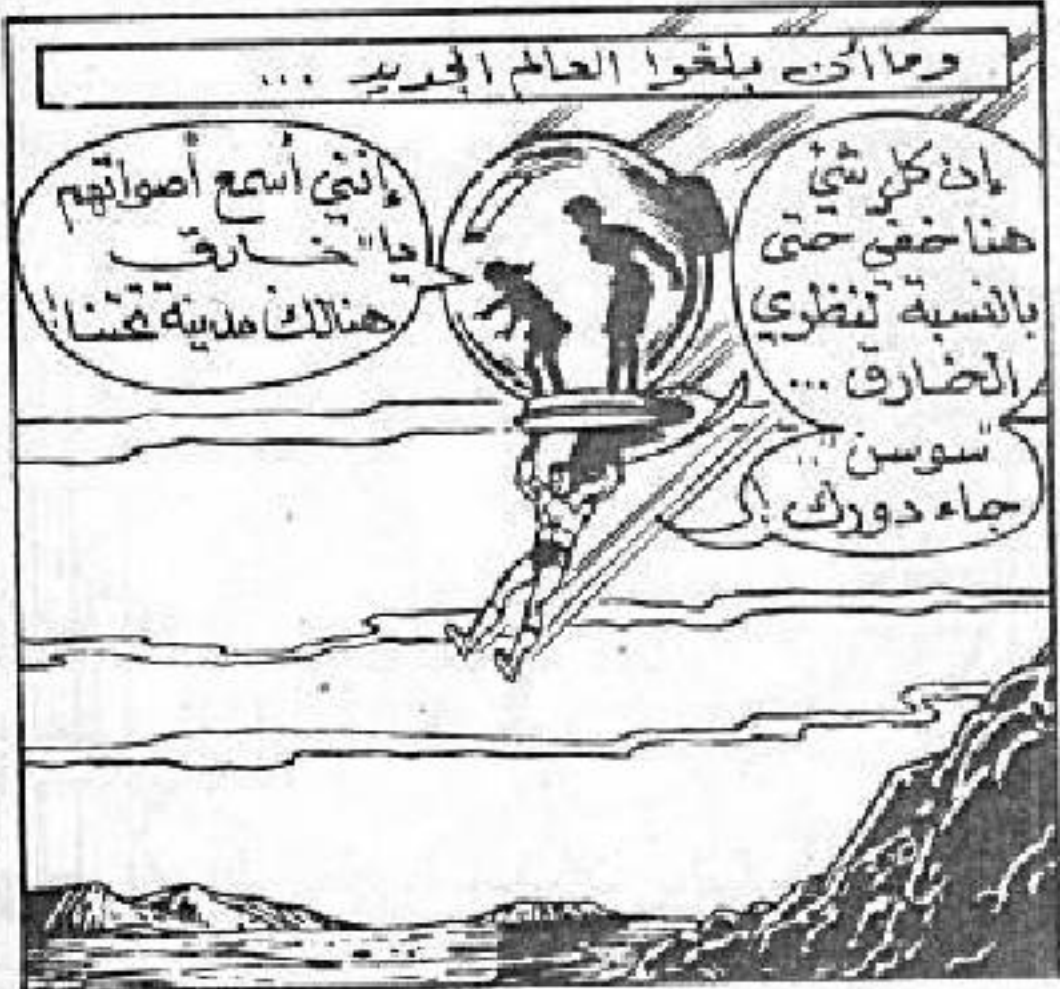 وما أن بلغوا العالم الجديد ...
إن كل شئ
هنا خفي حتى
بالنسبة لنظري
الخارق ...
"سوسن"..
جاء دورك!
إنني أسمع أصواتهم
يا "خارق"
هنالك مدينة تحتنا!